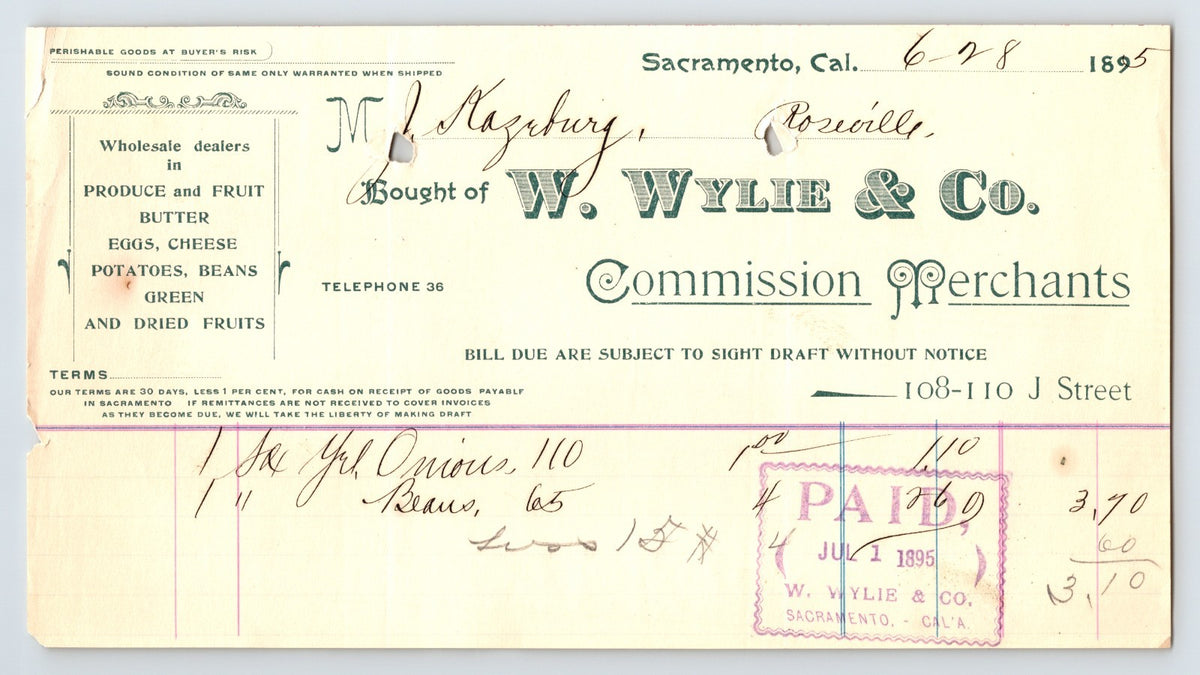 PERISHABLE GOODS AT BUYER'S RISK
SOUND CONDITION OF SAME ONLY WARRANTED WHEN SHIPPED
Sacramento, Cal. 6-28 1895
M J Kazeburg, Roseville.
Bought of W. WYLIE & CO.
Commission Merchants
TELEPHONE 36
Wholesale dealers
in
PRODUCE and FRUIT
BUTTER
EGGS, CHEESE
POTATOES, BEANS
GREEN
AND DRIED FRUITS
BILL DUE ARE SUBJECT TO SIGHT DRAFT WITHOUT NOTICE
108-110 J Street
TERMS
OUR TERMS ARE 30 DAYS, LESS 1 PER CENT, FOR CASH ON RECEIPT OF GOODS PAYABLE
IN SACRAMENTO IF REMITTANCES ARE NOT RECEIVED TO COVER INVOICES
AS THEY BECOME DUE, WE WILL TAKE THE LIBERTY OF MAKING DRAFT
1 Sx Yel Onions, 110 1.00 1.10
1 " Beans, 65 4 2 60 3.70
15 # 4 60
3.10
PAID,
JUL 1 1895
W. WYLIE & CO.
SACRAMENTO, - CAL'A.